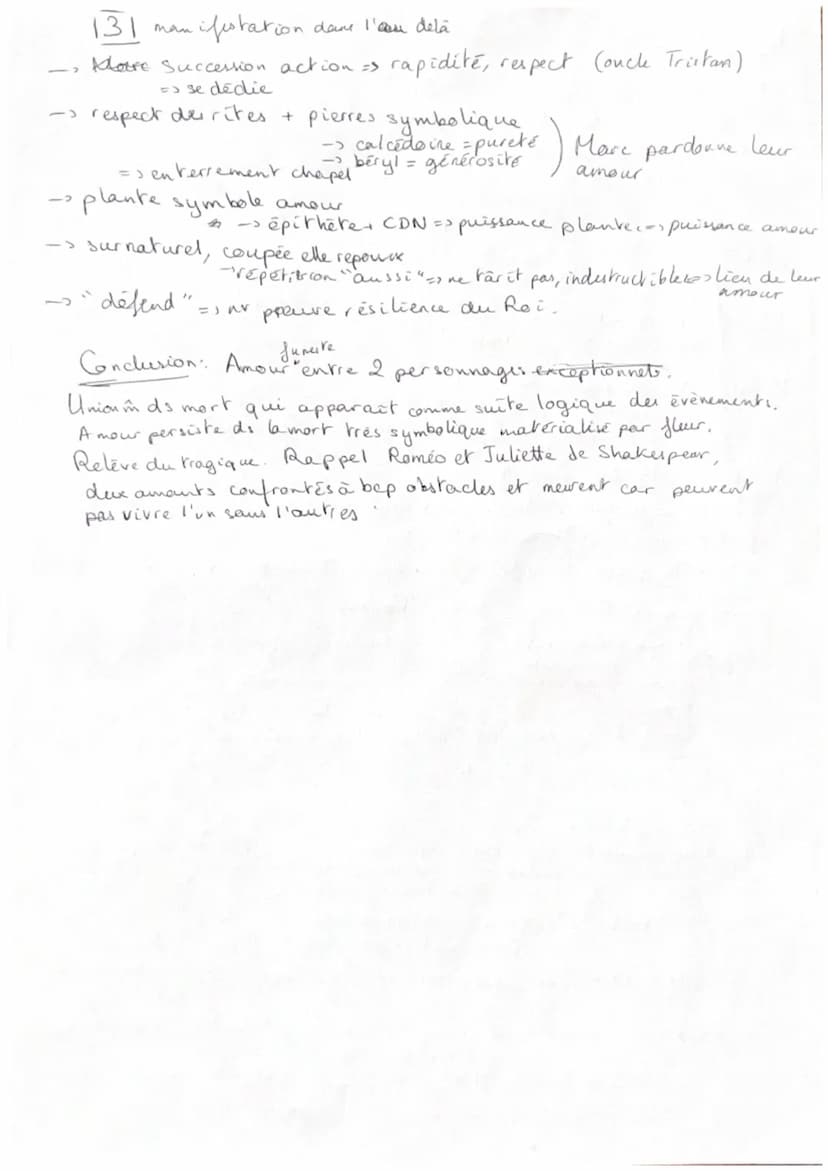 |3| manifestation dans l'au delà
-> Succession action => rapidité, respect (oncle Tristan)
=> se dédie
-> respect des rites + pierres symbolique
-> calcédoine = pureté
-> béryl = générosité
) Marc pardonne leur
amour
=> enterrement chapel
-> plante symbole amour
-> épithète + CDN => puissance plante => puissance amour
-> surnaturel, coupée elle repousse
-> répétition "aussi" => ne tarit pas, indestructible => lien de leur
amour
-> "défend" => nv preuve résilience du Roi.
funeste
Conclusion: Amour entre 2 personnages exceptionnels.
Union m̂ ds mort qui apparaît comme suite logique des évènements.
Amour persiste ds la mort très symbolique matérialisé par fleur.
Relève du tragique. Rappel Roméo et Juliette de Shakespear,
deux amants confrontés à bcp obstacles et meurent car peuvent
pas vivre l'un sans l'autres